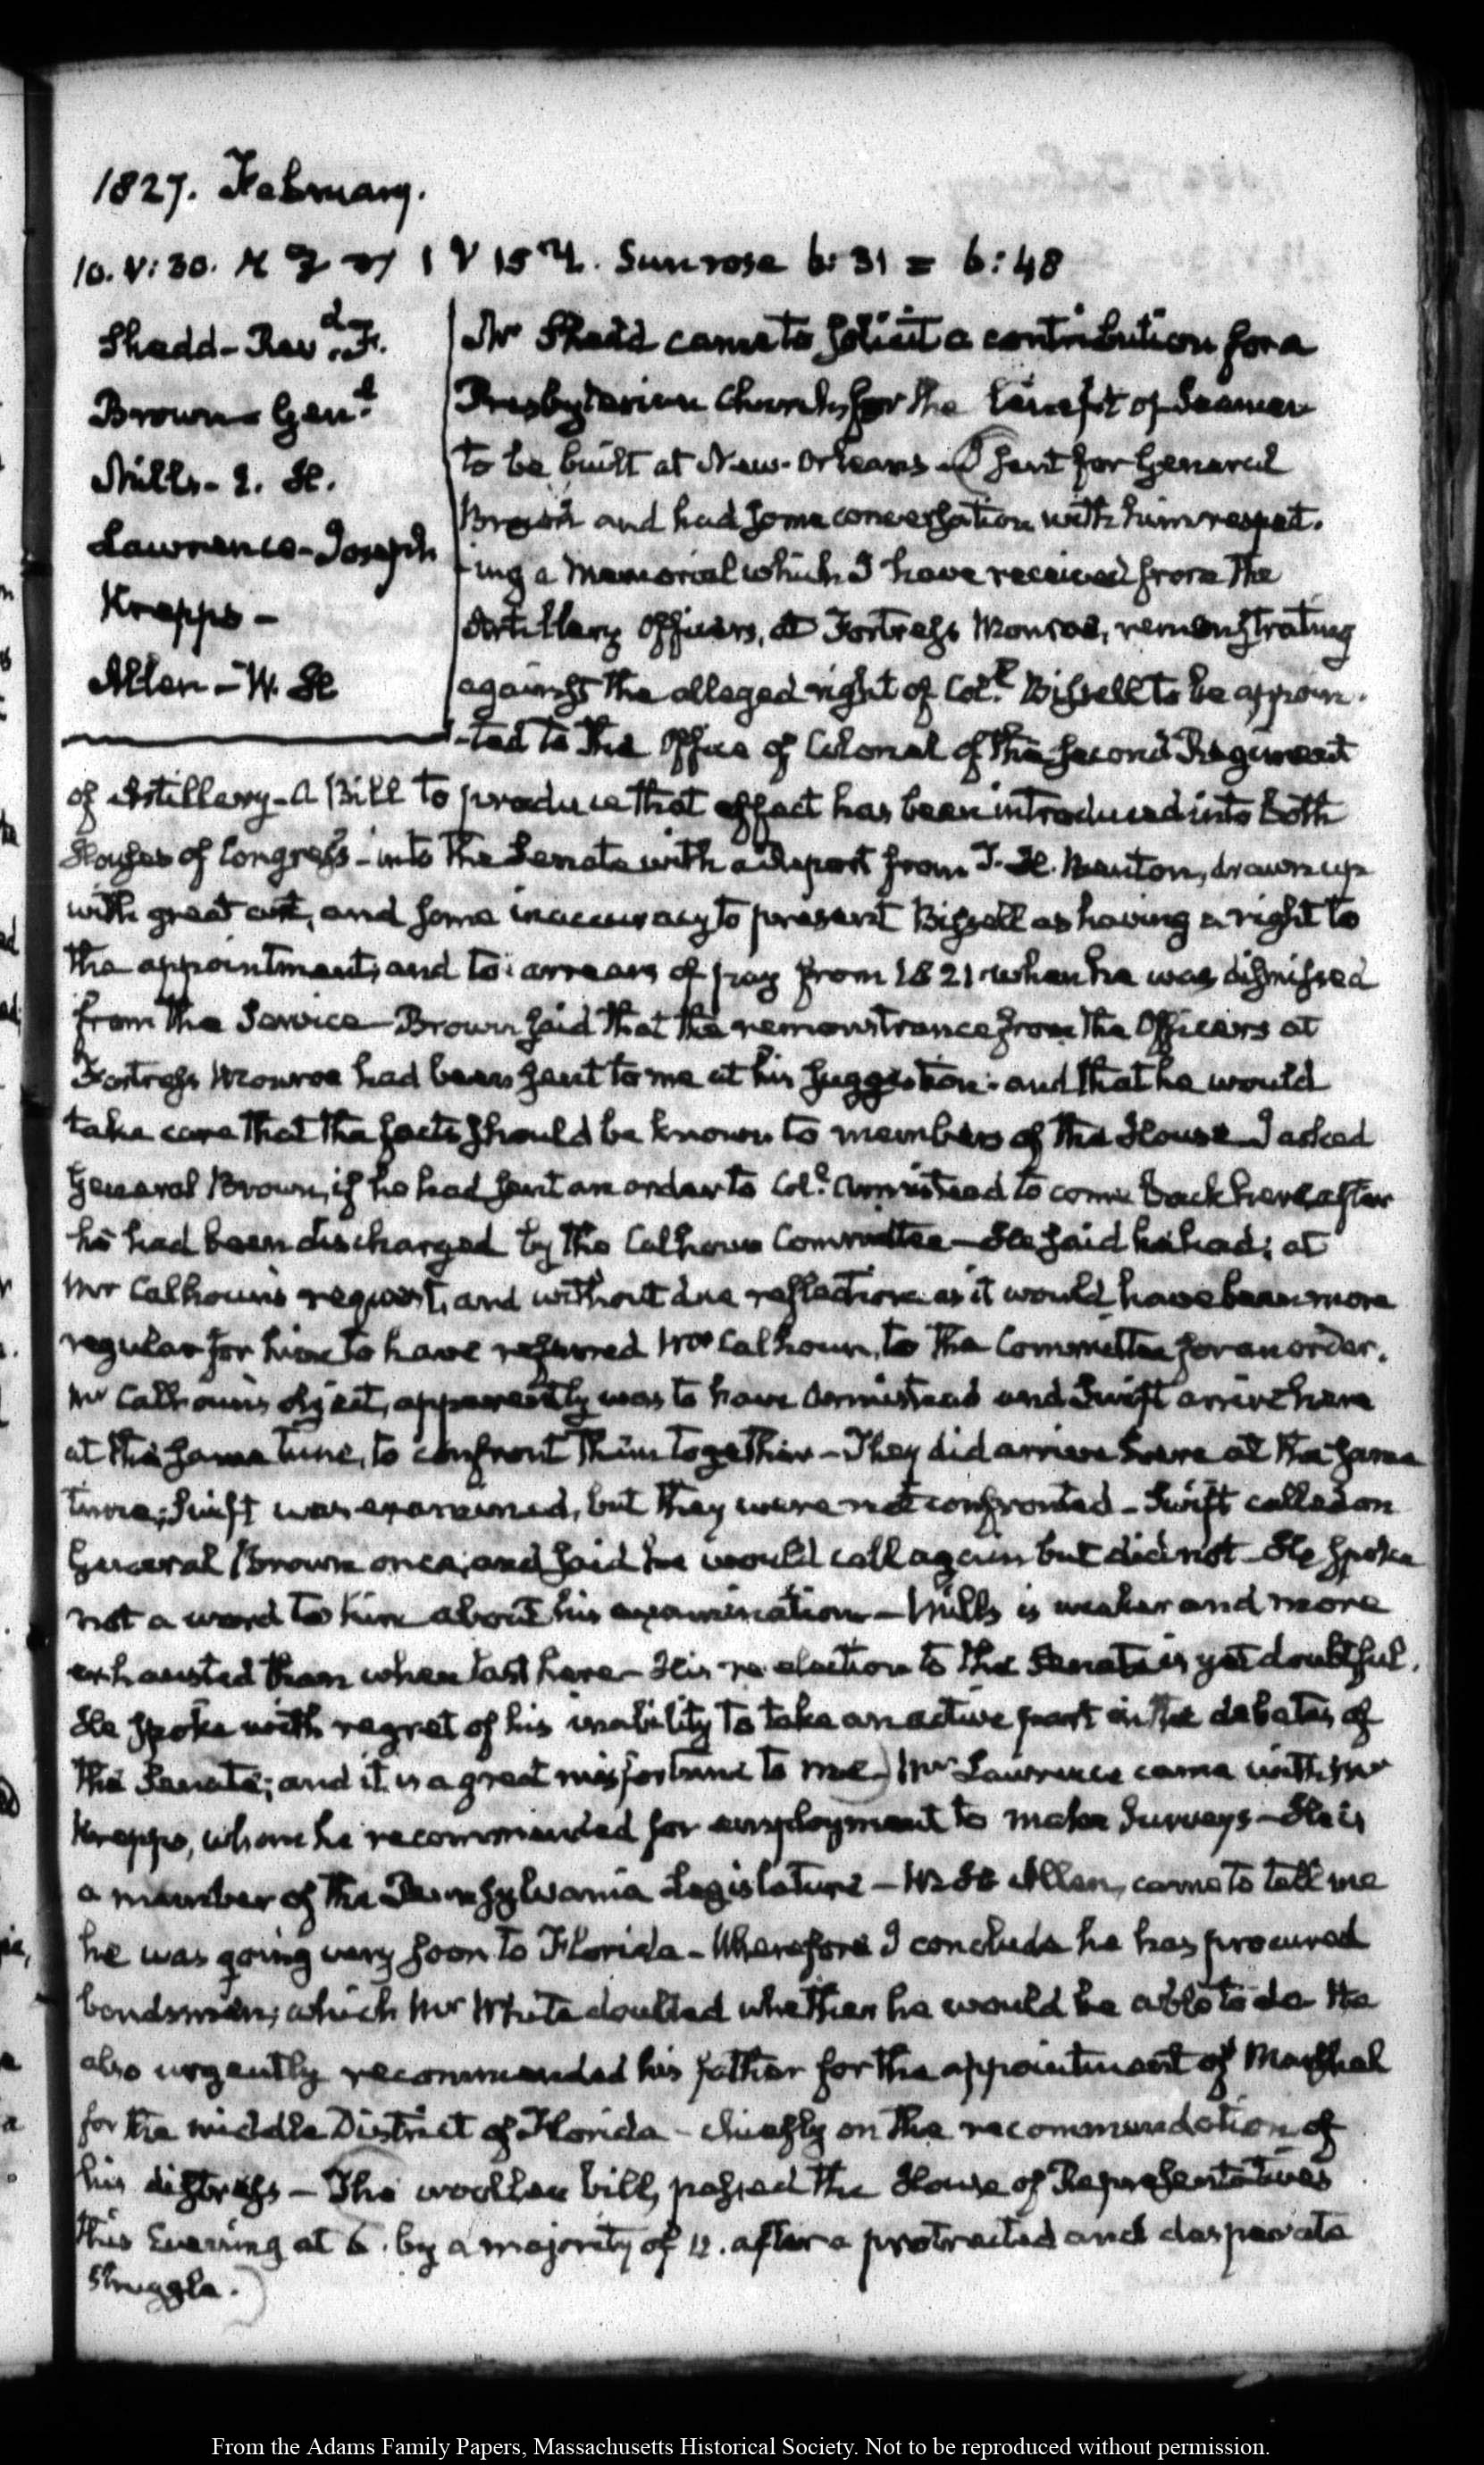 1827. February.
10. V:30. Sun rose 6:31 = 6:48
Shedd - Revd. 
Brown - Genl.
Mills - E. H.
Lawrence - Joseph
Krepps -
Allen - W. H
Mr Shedd came to solicit a contribution for a
Presbyterian Church, for the benefit of Seamen
to be built at New-Orleans - I sent for General
Brown and had some conversation with him respect-
-ing a Memorial which I have received from the
Artillery Officers, at Fortress Monroe, remonstrating
against the alleged right of Coll. Bissell to be appoin-
-ted to the Office of Colonel of the second Regiment
of Artillery - A Bill to produce that effect has been introduced into both
Houses of Congress - into the Senate with a Report from T. H. Benton, drawn up
with great art, and some inaccuracy to present Bissell as having a right to
the appointment, and to arrears of pay from 1821 when he was dismissed
from the Service - Brown said that the remonstrance from the Officers at
Fortress Monroe had been sent to me at his suggestion: and that he would
take care that the facts should be known to members of the House - I asked
General Brown, if he had sent an order to Coll. Armistead to come back here, after
he had been discharged by the Calhoun Committee - He said he had; at
Mr Calhoun's request, and without due reflection as it would have been more
regular for him to have referred Mr Calhoun, to the Committee for an order.
Mr Calhoun's object, apparently was to have Armistead and Swift arrive here
at the same time, to confront them together - They did arrive here at the same
time; Swift was examined, but they were not confronted - Swift called on
General Brown once, and said he would call again but did not - He spoke
not a word to him about his examination - Mills is weaker and more
exhausted than when last here - His re-election to the Senate is yet doubtful.
He spoke with regret of his inability to take an active part in the debates of
the Senate; and it is a great misfortune to me) Mr Lawrence came with Mr
Krepps, whom he recommended for employment to make Surveys - He is
a member of the Pennsylvania Legislature - W. H Allen, came to tell me
he was going very soon to Florida - Wherefore I conclude he has procured
bondsmen; which Mr White doubted whether he would be able to do He
also urgently recommended his father for the appointment of Marshal
for the middle District of Florida - chiefly on the recommendation of
his distress - The woollen bill, passed the House of Representatives
this Evening at 6. by a majority of 12. after a protracted and desperate
struggle.)
From the Adams Family Papers, Massachusetts Historical Society. Not to be reproduced without permission.